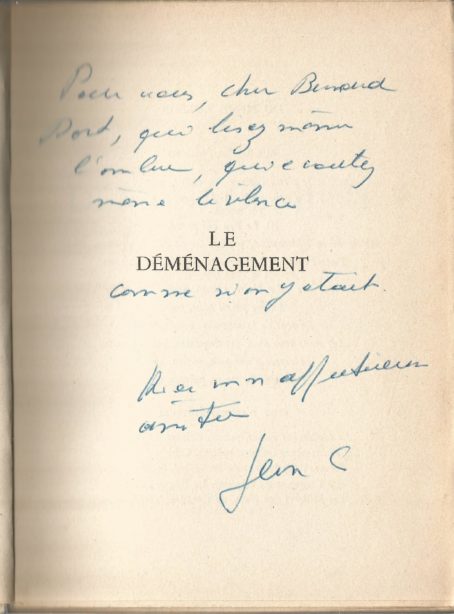 Pour vous, cher Bernard
Dort, qui lisez même
l'ombre, qui ecoutez
même le silence
LE
DÉMÉNAGEMENT
comme si on y etait.
mon affectueuse
amitié
Jean C